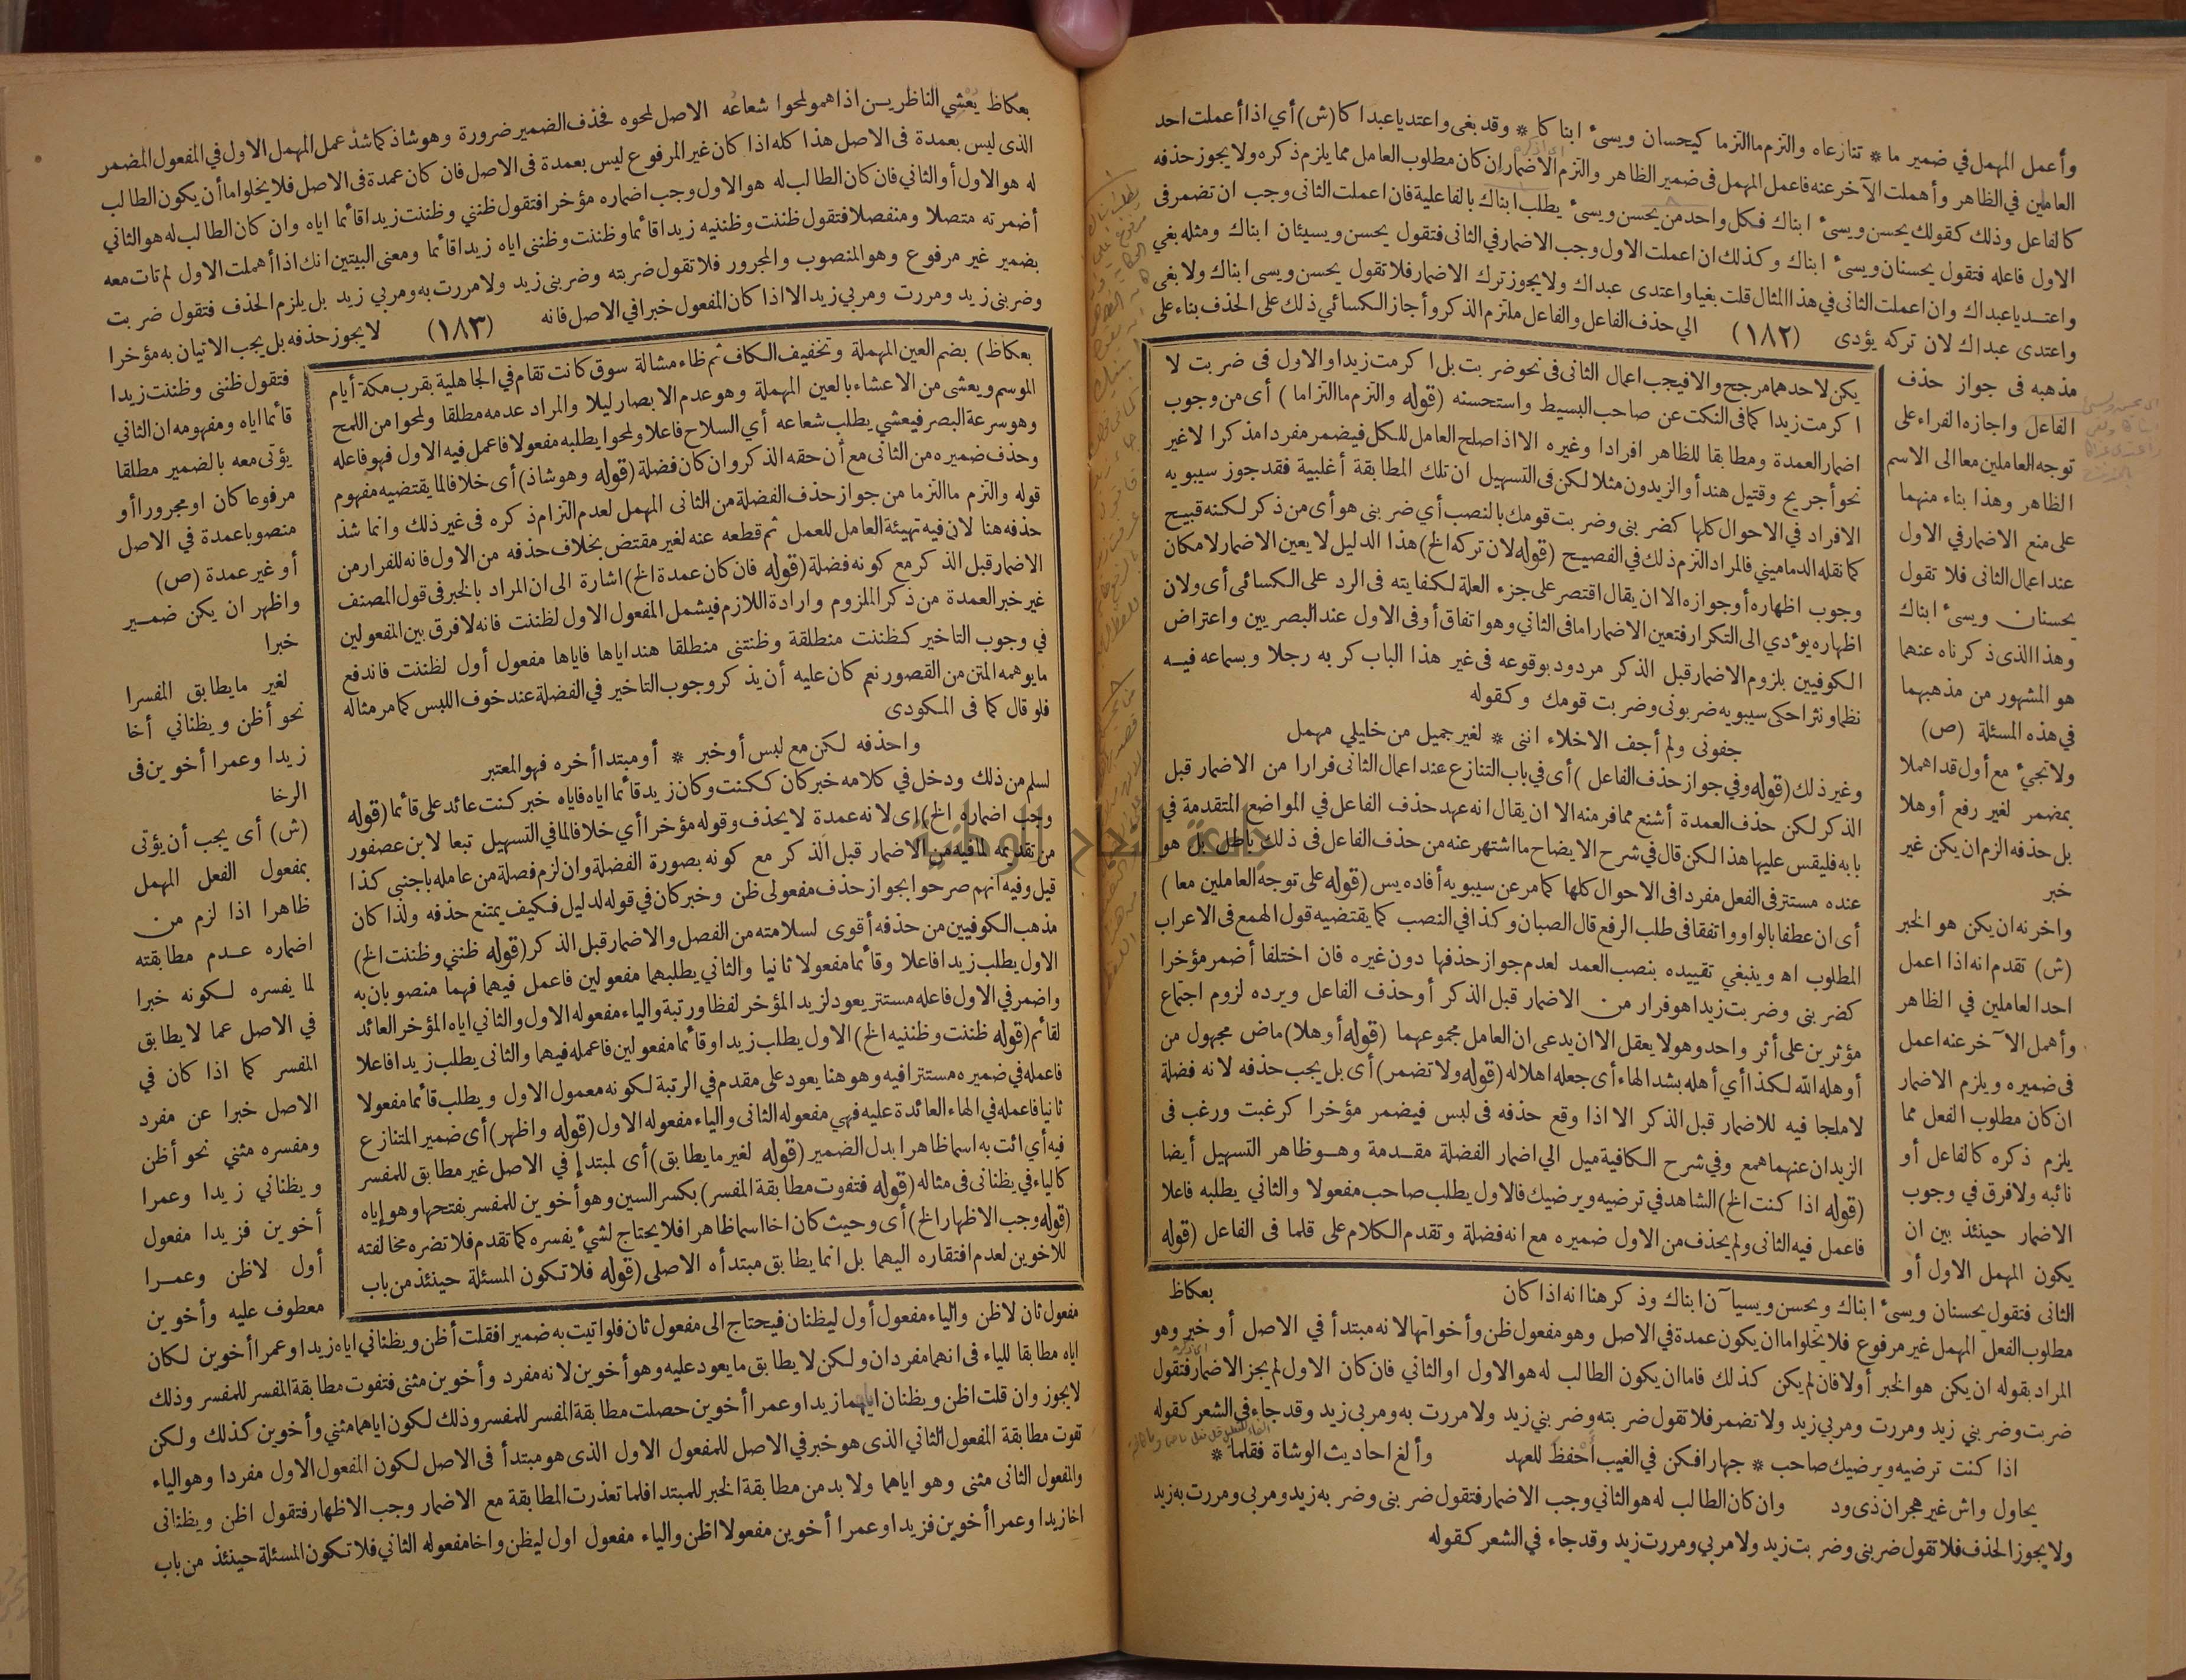 وأعمل المهمل في ضمير ما * تنازعاه والتزم ما التزما كيحسان ويسىء ابناكا * وقد بغى واعتديا عبداكا (ش) أي اذا أعملت احد
العاملين في الظاهر وأهملت الآخر عنه فاعمل المهمل فى ضمير الظاهر والتزم الاضمار ان كان مطلوب العامل مما يلزم ذكره ولا يجوز حذفه
كالفاعل وذلك كقولك يحسن ويسىء ابناك فكل واحد من يحسن ويسىء يطلب ابناك بالفاعلية فان اعملت الثانى وجب ان تضمر فى
الاول فاعله فتقول يحسنان ويسىء ابناك وكذلك ان اعملت الاول وجب الاضمار في الثانى فتقول يحسن ويسيئان ابناك ومثله بغي
واعتديا عبداك وان اعملت الثانى في هذا المثال قلت بغيا واعتدى عبداك ولا يجوز ترك الاضمار فلا تقول يحسن ويسى ابناك ولا بغى
واعتدى عبداك لان تركه يؤدى (١٨٢) الي حذف الفاعل والفاعل ملتزم الذكر وأجاز الكسائي ذلك على الحذف بناء على
مذهبه فى جواز حذف
الفاعل واجازه الفراء على
توجه العاملين معا الى الاسم
الظاهر وهذا بناء منهما
على منع الاضمار في الاول
عند اعمال الثانى فلا تقول
يحسنان ويسىء ابناك
وهذا الذى ذكرناه عنهما
هو المشهور من مذهبهما
في هذه المسئلة (ص)
ولا تجىء مع أول قد اهملا
بمضمر لغير رفع أوهلا
بل حذفه الزم ان يكن غير
خبر
واخرنه ان يكن هو الخبر
(ش) تقدم انه اذا اعمل
احد العاملين في الظاهر
وأهمل الآخر عنه اعمل
فى ضميره ويلزم الاضمار
ان كان مطلوب الفعل مما
يلزم ذكره كالفاعل أو
نائبه ولا فرق في وجوب
الاضمار حينئذ بين ان
يكون المهمل الاول أو
الثانى فتقول يحسنان ويسىء ابناك ويحسن ويسيآن ابناك وذكر هنا انه اذا كان
مطلوب الفعل المهمل غير مرفوع فلا يخلو اما ان يكون عمدة في الاصل وهو مفعول ظن وأخواتها لانه مبتدأ في الاصل أو خبر وهو
المراد بقوله ان يكن هو الخبر أولا فان لم يكن كذلك فاما ان يكون الطالب له هو الاول او الثاني فان كان الاول لم يجز الاضمار فتقول
ضربت وضربني زيد ومررت ومربي زيد ولا تضمر فلا تقول ضربته وضربني زيد ولا مررت به ومربى زيد وقد جاء في الشعر كقوله
اذا كنت ترضيه ويرضيك صاحب * جهارا فكن في الغيب أحفظ للعهد وألغ احاديث الوشاة فقلما *
يحاول واش غير هجران ذى ود وان كان الطالب له هو الثاني وجب الاضمار فتقول ضربنى وضربه زيد ومربى ومررت به زيد
ولا يجوز الحذف فلا تقول ضربنى وضربت زيد ولا مربي ومررت زيد وقد جاء في الشعر كقوله
يكن لاحدهما مرجح والا فيجب اعمال الثانى فى نحو ضربت بل اكرمت زيدا والاول فى ضربت لا
اكرمت زيدا كما فى النكت عن صاحب البسيط واستحسنه (قوله والتزم ما التزاما) أى من وجوب
اضمار العمدة ومطابقا للظاهر افرادا وغيره الا اذا صلح العامل للكل فيضمر مفردا مذكرا لا غير
نحو أجريح وقتيل هند أو الزيدون مثلا لكن فى التسهيل ان تلك المطابقة أغلبية فقد جوز سيبويه
الافراد في الاحوال كلها كضربنى وضربت قومك بالنصب أي ضربنى هو أى من ذكر لكنه قبيح
كما نقله الدماميني فالمراد التزم ذلك في الفصيح (قوله لان تركه الخ) هذا الدليل لا يعين الاضمار لامكان
وجوب اظهاره أو جوازه الا ان يقال اقتصر على جزء العلة لكفايته فى الرد على الكسائى أى ولان
اظهاره يؤدي الى التكرار فتعين الاضمار اما فى الثاني وهو اتفاق أو فى الاول عند البصريين واعتراض
الكوفيين بلزوم الاضمار قبل الذكر مردود بوقوعه فى غير هذا الباب كربه رجلا وبسماعه فيه
نظما ونثرا حكى سيبويه ضربونى وضربت قومك وكقوله
جفونى ولم أجف الاخلاء اننى * لغير جميل من خليلي مهمل
وغير ذلك (قوله وفي جواز حذف الفاعل) أى في باب التنازع عند اعمال الثانى فرارا من الاضمار قبل
الذكر لكن حذف العمدة أشنع مما فر منه الا ان يقال انه عهد حذف الفاعل في المواضع المتقدمة في
بابه فليقس عليها هذا لكن قال في شرح الايضاح ما اشتهر عنه من حذف الفاعل فى ذلك باطل بل هو
عنده مستتر فى الفعل مفردا فى الاحوال كلها كما مر عن سيبويه أفاده يس (قوله على توجه العاملين معا)
أى ان عطفا بالواو واتفقا فى طلب الرفع قال الصبان وكذا في النصب كما يقتضيه قول الهمع فى الاعراب
المطلوب اه وينبغي تقييده بنصب العمد لعدم جواز حذفها دون غيره فان اختلفا أضمر مؤخرا
كضربنى وضربت زيدا هو فرار من الاضمار قبل الذكر أو حذف الفاعل ويرده لزوم اجتماع
مؤثرين على أثر واحد وهو لا يعقل الا ان يدعى ان العامل مجموعهما (قوله أوهلا) ماض مجهول من
أوهله الله لكذا أي أهله بشد الهاء أى جعله اهلا له (قوله ولا تضمر) أى بل يجب حذفه لانه فضلة
لا ملجا فيه للاضمار قبل الذكر الا اذا وقع حذفه فى لبس فيضمر مؤخرا كرغبت ورغب فى
الزيدان عنهما همع وفي شرح الكافية ميل الي اضمار الفضلة مقدمة وهو ظاهر التسهيل أيضا
(قوله اذا كنت الخ) الشاهد في ترضيه ويرضيك فالاول يطلب صاحب مفعولا والثاني يطلبه فاعلا
فاعمل فيه الثانى ولم يحذف من الاول ضميره مع انه فضلة وتقدم الكلام على قلما فى الفاعل (قوله
بعكاظ
بعكاظ يُعْشي الناظرين اذا همو لمحوا شعاعُه الاصل لمحوه فحذف الضمير ضرورة وهو شاذ كما شذ عمل المهمل الاول في المفعول المضمر
الذى ليس بعمدة فى الاصل هذا كله اذا كان غير المرفوع ليس بعمدة فى الاصل فان كان عمدة فى الاصل فلا يخلو اما أن يكون الطالب
له هو الاول أو الثاني فان كان الطالب له هو الاول وجب اضماره مؤخرا فتقول ظنني وظننت زيدا قائما اياه وان كان الطالب له هو الثاني
أضمرته متصلا ومنفصلا فتقول ظننت وظننيه زيدا قائما وظننت وظننى اياه زيدا قائما ومعنى البيتين انك اذا أهملت الاول لم تات معه
بضمير غير مرفوع وهو المنصوب والمجرور فلا تقول ضربته وضربنى زيد ولا مررت به ومربي زيد بل يلزم الحذف فتقول ضربت
وضربنى زيد ومررت ومربي زيد الا اذا كان المفعول خبرا في الاصل فانه (١٨٣) لا يجوز حذفه بل يجب الاتيان به مؤخرا
فتقول ظننى وظننت زيدا
قائما اياه ومفهومه ان الثاني
يؤتى معه بالضمير مطلقا
مرفوعا كان او مجرورا أو
منصوبا عمدة في الاصل
أو غير عمدة (ص)
واظهر ان يكن ضمير
خبرا
لغير ما يطابق المفسرا
نحو أظن ويظناني أخا
زيدا وعمرا أخوين فى
الرخا
(ش) أى يجب أن يؤتى
بمفعول الفعل المهمل
ظاهرا اذا لزم من
اضماره عدم مطابقته
لما يفسره لكونه خبرا
في الاصل عما لا يطابق
المفسر كما اذا كان في
الاصل خبرا عن مفرد
ومفسره مثني نحو أظن
ويظناني زيدا وعمرا
أخوين فزيدا مفعول
أول لاظن وعمرا
معطوف عليه وأخوين
مفعول ثان لاظن والياء مفعول أول ليظنان فيحتاج الى مفعول ثان فلو اتيت به ضميرا فقلت أظن ويظناني اياه زيدا وعمرا أخوين لكان
اياه مطابقا للياء فى انهما مفردان ولكن لا يطابق ما يعود عليه وهو أخوين لانه مفرد وأخوين مثنى فتفوت مطابقة المفسر للمفسر وذلك
لا يجوز وان قلت اظن ويظنان اياهما زيدا وعمرا أخوين حصلت مطابقة المفسر للمفسر وذلك لكون اياهما مثني وأخوين كذلك ولكن
تفوت مطابقة المفعول الثاني الذى هو خبر في الاصل للمفعول الاول الذى هو مبتدأ فى الاصل لكون المفعول الاول مفردا وهو الياء
والمفعول الثانى مثنى وهو اياهما ولا بد من مطابقة الخبر للمبتدا فلما تعذرت المطابقة مع الاضمار وجب الاظهار فتقول اظن ويظنانى
اخا زيدا وعمرا أخوين فزيدا وعمرا أخوين مفعولا اظن والياء مفعول اول ليظن واخا مفعوله الثاني فلا تكون المسئلة حينئذ من باب
بعكاظ) بضم العين المهملة وتخفيف الكاف ثم ظاء مشالة سوق كانت تقام في الجاهلية بقرب مكة أيام
الموسم ويعشى من الاعشاء بالعين المهملة وهو عدم الابصار ليلا والمراد عدمه مطلقا ولمحوا من اللمح
وهو سرعة البصر فيعشي يطلب شعاعه أي السلاح فاعلا ولمحوا يطلبه مفعولا فاعمل فيه الاول فهو فاعله
وحذف ضميره من الثانى مع أن حقه الذكر وان كان فضلة (قوله وهو شاذ) أى خلافا لما يقتضيه مفهوم
قوله والتزم ما التزما من جواز حذف الفضلة من الثانى المهمل لعدم التزام ذكره فى غير ذلك وانما شذ
حذفه هنا لان فيه تهيئة العامل للعمل ثم قطعه عنه لغير مقتض بخلاف حذفه من الاول فانه للفرار من
الاضمار قبل الذكر مع كونه فضلة (قوله فان كان عمدة الخ) اشارة الى ان المراد بالخبر فى قول المصنف
غير خبر العمدة من ذكر الملزوم وارادة اللازم فيشمل المفعول الاول لظننت فانه لا فرق بين المفعولين
في وجوب التاخير كظننت منطلقة وظنتنى منطلقا هند اياها فاياها مفعول أول لظننت فاندفع
ما يوهمه المتن من القصور نعم كان عليه أن يذكر وجوب التاخير في الفضلة عند خوف اللبس كما مر مثاله
فلو قال كما فى المكودى
واحذفه لكن مع لبس أو خبر * أو مبتدا أخره فهو المعتبر
لسلم من ذلك ودخل في كلامه خبر كان ككنت وكان زيد قائما اياه فاياه خبر كنت عائد على قائما (قوله
وجب اضماره الخ) اى لانه عمدة لا يحذف وقوله مؤخرا أي خلافا لما في التسهيل تبعا لابن عصفور
من تقديمه لما فيه من الاضمار قبل الذكر مع كونه بصورة الفضلة وان لزم فصلة من عامله باجنبي كذا
قيل وفيه أنهم صرحوا بجواز حذف مفعولى ظن وخبر كان في قوله لدليل فكيف يمتنع حذفه ولذا كان
مذهب الكوفيين من حذفه أقوى لسلامته من الفصل والاضمار قبل الذكر (قوله ظنني وظننت الخ)
الاول يطلب زيدا فاعلا وقائما مفعولا ثانيا والثاني يطلبهما مفعولين فاعمل فيهما فهما منصوبان به
واضمر في الاول فاعله مستتر يعود لزيد المؤخر لفظا ورتبة والياء مفعوله الاول والثاني اياه المؤخر العائد
لقائم (قوله ظننت وظننيه الخ) الاول يطلب زيدا وقائما مفعولين فاعمله فيهما والثانى يطلب زيدا فاعلا
فاعمله في ضميره مستترا فيه وهو هنا يعود على مقدم في الرتبة لكونه معمول الاول ويطلب قائما مفعولا
ثانيا فاعمله في الهاء العائدة عليه فهي مفعوله الثانى والياء مفعوله الاول (قوله واظهر) أى ضمير المتنازع
فيه أي ائت به اسما ظاهرا بدل الضمير (قوله لغير ما يطابق) أى لمبتدإ في الاصل غير مطابق للمفسر
كالياء في يظنانى فى مثاله (قوله فتفوت مطابقة المفسر) بكسر السين وهو أخوين للمفسر بفتحها وهو إياه
(قوله وجب الاظهار الخ) أى وحيث كان اخا اسما ظاهرا فلا يحتاج لشيء يفسره كما تقدم فلا تضره مخالفته
للاخوين لعدم افتقاره اليهما بل انما يطابق مبتدأه الاصلى (قوله فلا تكون المسئلة حينئذ من باب